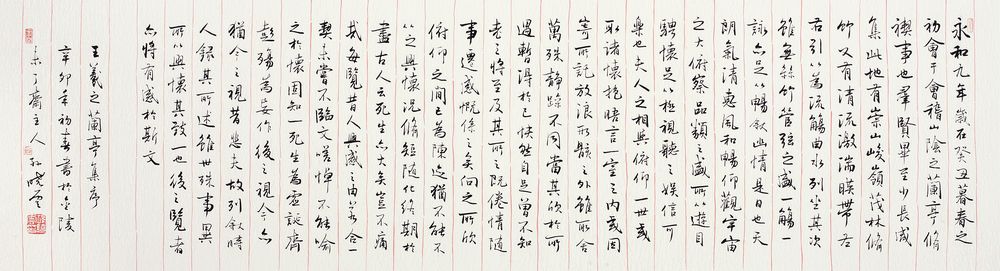 永和九年歲在癸丑暮春之
初會于會稽山陰之蘭亭脩
禊事也羣賢畢至少長咸
集此地有崇山峻嶺茂林脩
竹又有清流激湍暎帶左
右引以為流觴曲水列坐其次
雖無絲竹管弦之盛一觴一
詠亦足以暢敘幽情是日也天
朗氣清惠風和暢仰觀宇宙
之大俯察品類之盛所以遊目
騁懷足以極視聽之娛信可
樂也夫人之相與俯仰一世或
取諸懷抱悟言一室之內或因
寄所託放浪形骸之外雖趣舍
萬殊靜躁不同當其欣於所
遇暫得於己快然自足曾不知
老之將至及其所之既倦情隨
事遷感慨係之矣向之所欣
俯仰之間已為陳迹猶不能不
以之興懷況脩短隨化終期於
盡古人云死生亦大矣豈不痛
哉每覽昔人興感之由若合一
契未嘗不臨文嗟悼不能喻
之於懷固知一死生為虛誕齊
彭殤為妄作後之視今亦
猶今之視昔悲夫故列敘時
人錄其所述雖世殊事異
所以興懷其致一也後之覽者
亦將有感於斯文
王羲之蘭亭集序
辛卯年初春書於金陵
未了齋主人孫曉雲